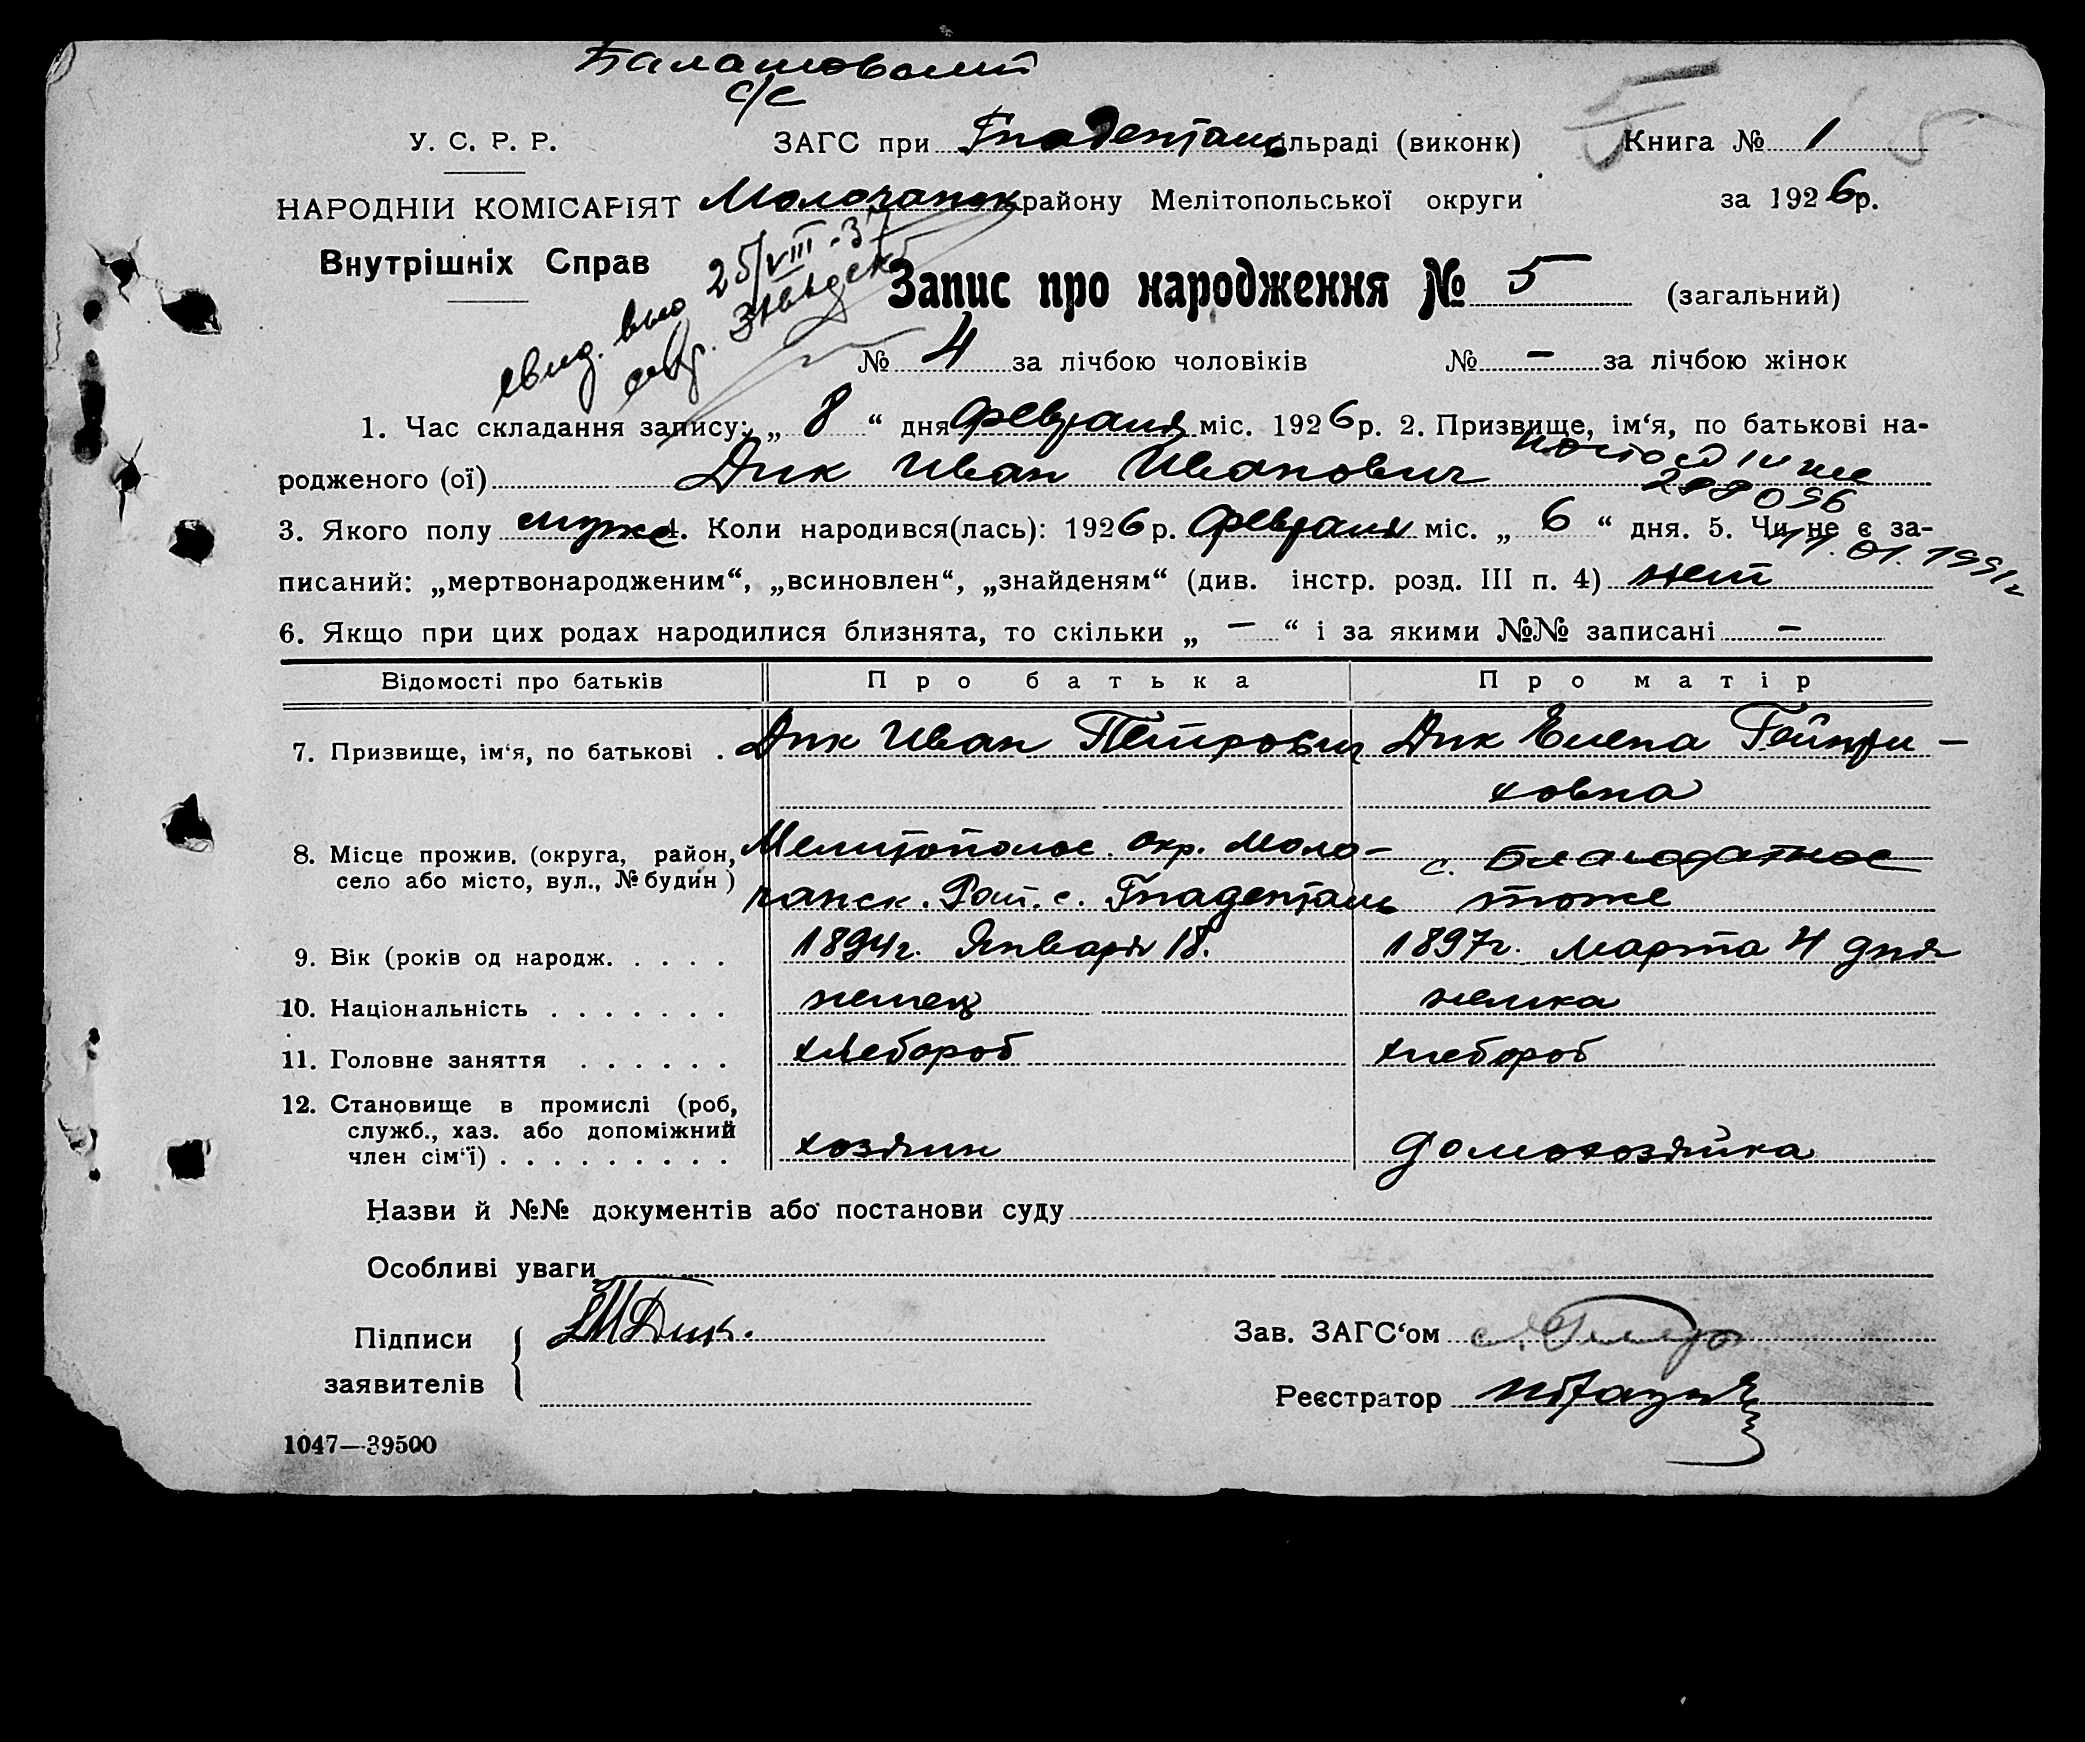 с/с
У. С. Р. Р.
ЗАГС при Гнаденталь ільраді (виконк)
Книга № 1
5
НАРОДНІЙ КОМІСАРІЯТ
Молочанск району Мелітопольської округи
за 1926 р.
Внутрішніх Справ
25/VIII-37
Запис про народження № 5 (загальний)
№ 4 за лічбою чоловіків № — за лічбою жінок
1. Час складання запису: „ 8 “ дня февраля міс. 1926 р. 2. Призвище, ім‘я, по батькові на-
родженого (ої) Дик Иван Иванович
288096
3. Якого полу муже 4. Коли народився(лась): 1926 р. февраля міс. „ 6 “ дня. 5. Чи не є за-
11.01.1991г
писаний: „мертвонародженим“, „всиновлен“, „знайденям“ (див. інстр. розд. III п. 4) нет
6. Якщо при цих родах народилися близнята, то скільки „ — “ і за якими №№ записані —
Відомості про батьків Про батька Про матір
7. Призвище, ім‘я, по батькові . Дик Иван Петрович Дик Елена Гейнри-
ховна
8. Місце прожив. (округа, район, Мелитополс. окр. Моло- с. Благодатное
село або місто, вул., № будин) чанск. Рай. с. Гнаденталь тоже
9. Вік (років од народж. . . . . 1894г. Января 18. 1897г. марта 4 дня
10. Національність . . . . . . . немец немка
11. Головне заняття . . . . . . хлебороб хлебороб
12. Становище в промислі (роб,
служб., хаз. або допоміжний
член сім‘ї) . . . . . . . . . хозяин домохозяйка
Назви й №№ документів або постанови суду
Особливі уваги
Підписи
заявителів
Дик.
Зав. ЗАГС‘ом
Реєстратор
1047—39500